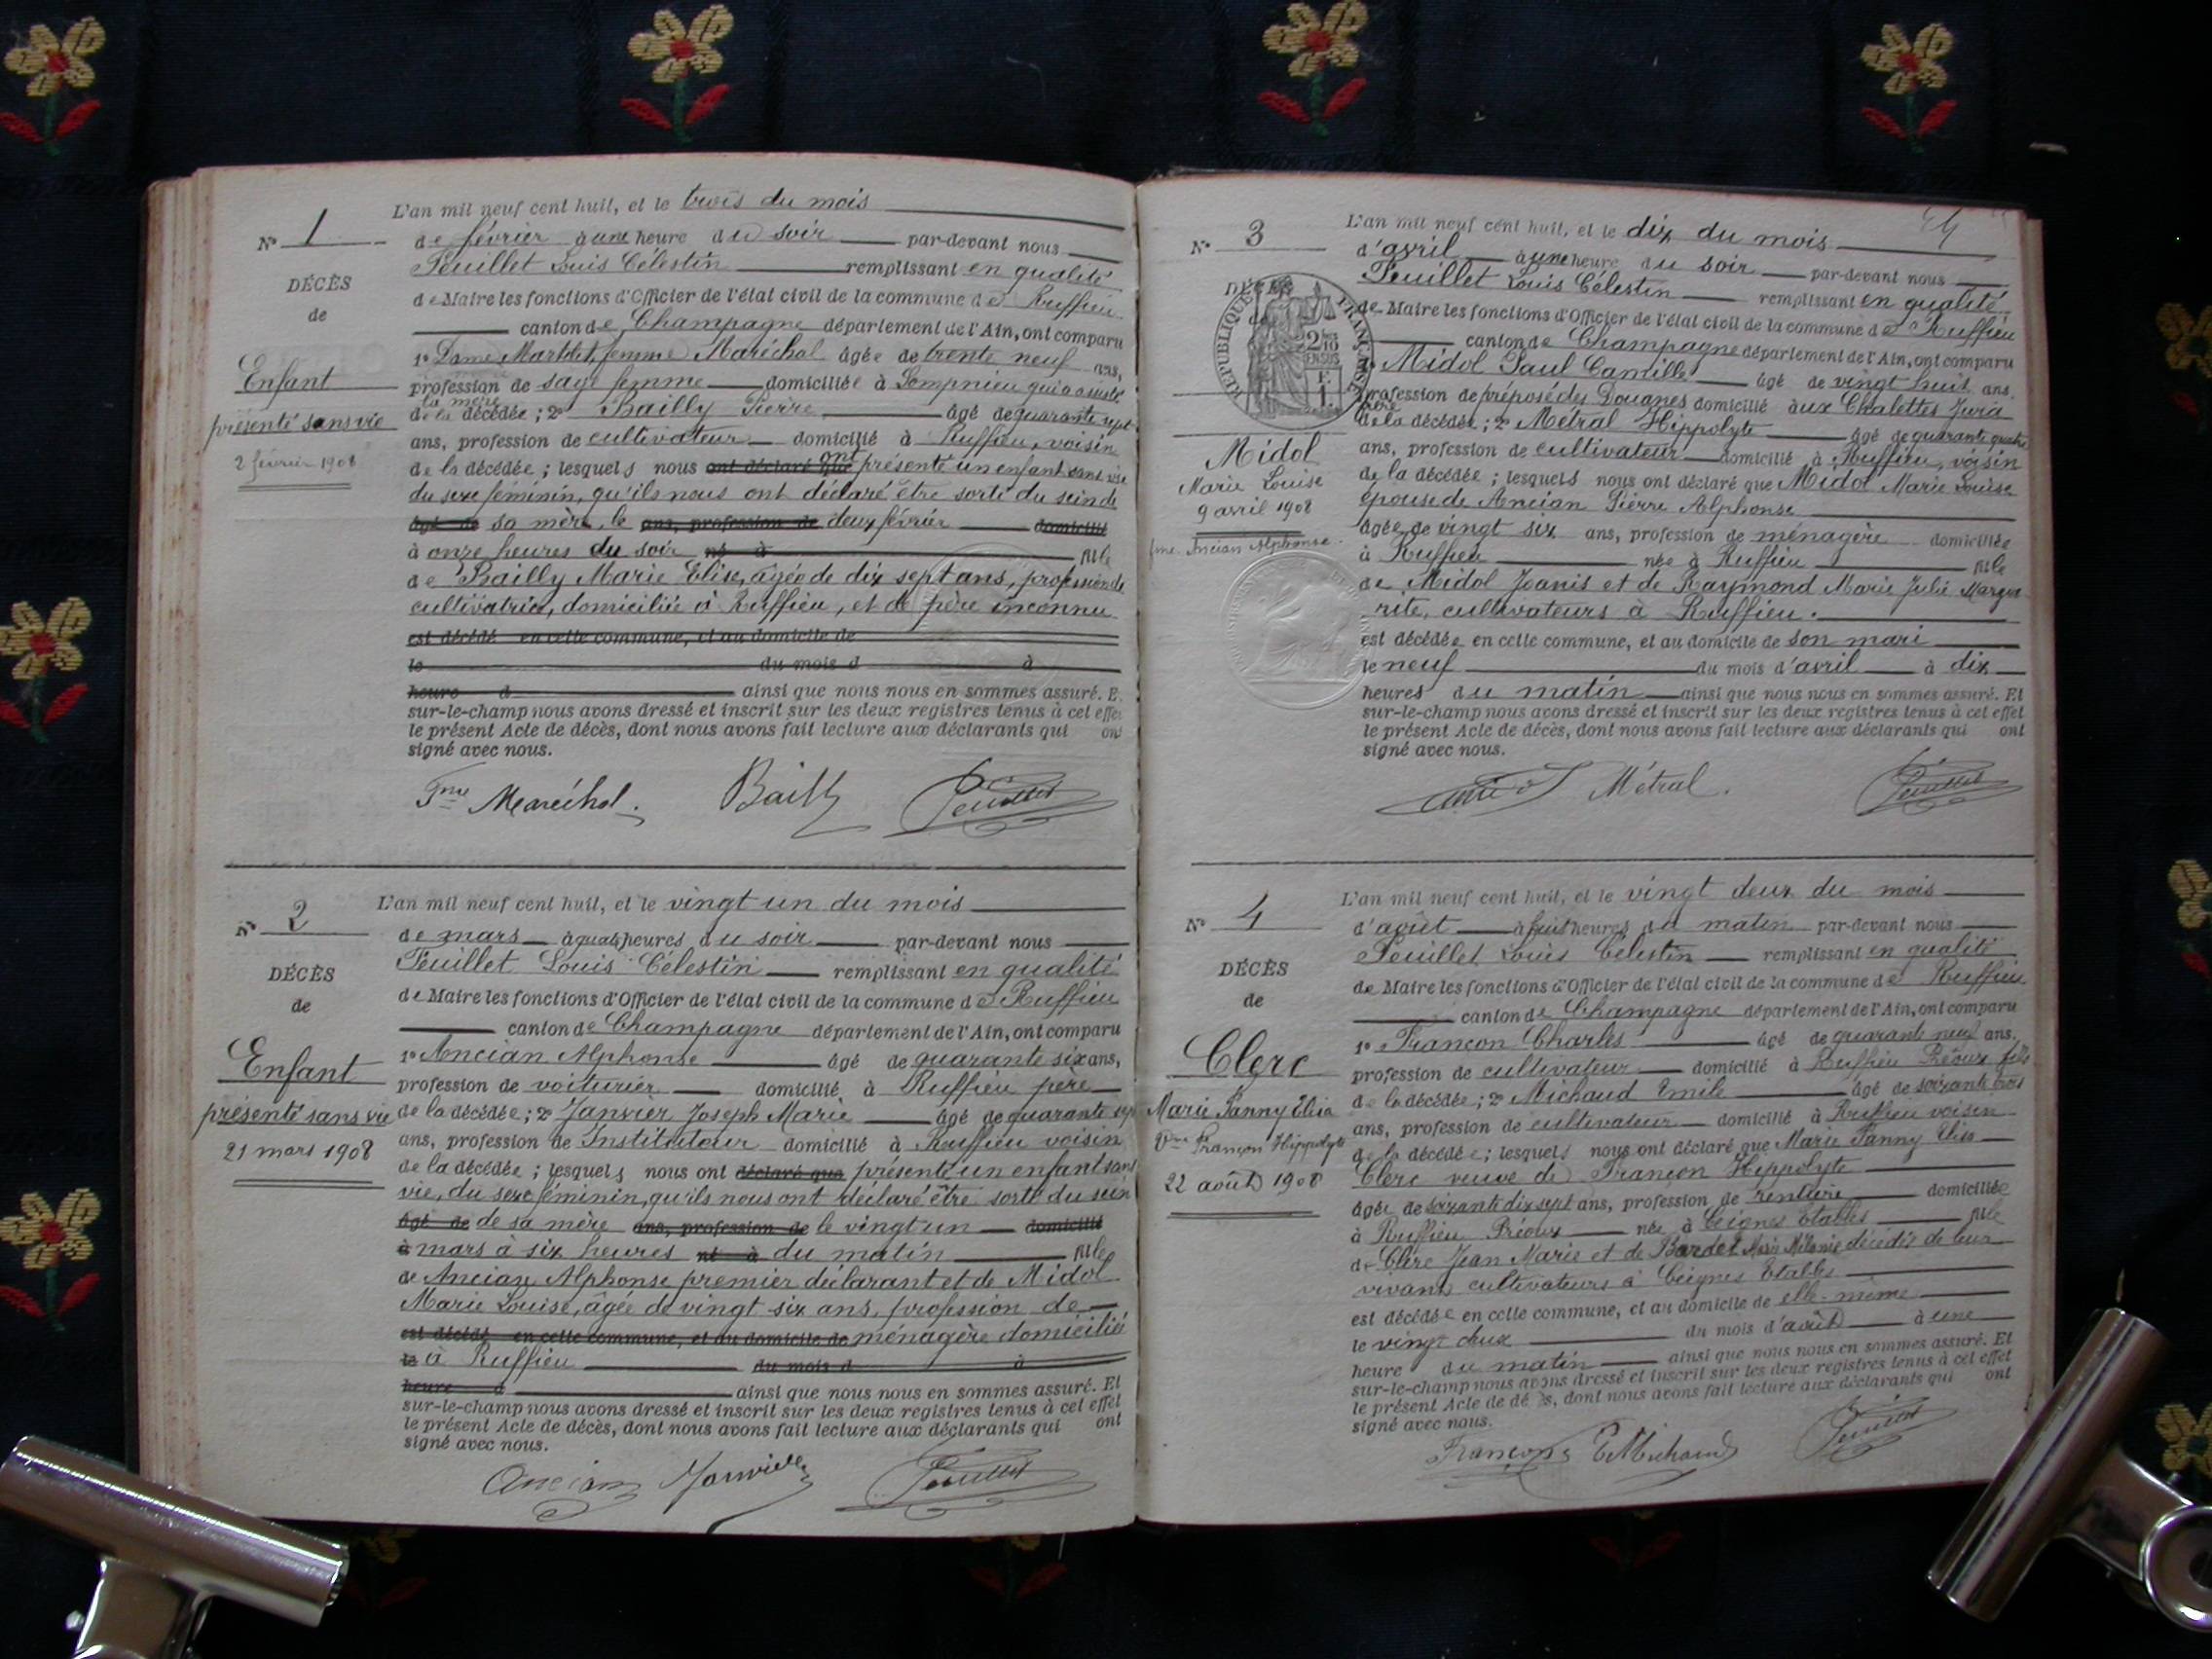 N° 1
DÉCÈS
de
Enfant
présenté sans vie
2 février 1908
L'an mil neuf cent huit, et le trois du mois
de février à une heure du soir par-devant nous
Peuillet Louis Célestin remplissant en qualité
de Maire les fonctions d'Officier de l'état civil de la commune de Ruffieu
canton de Champagne département de l'Ain, ont comparu
1° Dame femme Maréchal âgée de trente neuf ans,
profession de sage femme domiciliée à qui a assisté
la mère
de la décédée; 2° Bailly Pierre âgé de quarante sept
ans, profession de cultivateur domicilié à Ruffieu, voisin
de la décédée; lesquels nous ont déclaré que ont présenté un enfant sans vie
du sexe féminin, qu'ils nous ont déclaré être sorti du sein de
âgé de sa mère, le ans, profession de deux février domicilié
à onze heures du soir né à fille
de Bailly Marie Elise, âgée de dix sept ans, profession de
cultivatrice, domiciliée à Ruffieu, et de père inconnu
est décédé en cette commune, et au domicile de
le du mois d à
heure d ainsi que nous nous en sommes assuré. E
sur-le-champ nous avons dressé et inscrit sur les deux registres tenus à cet effet
le présent Acte de décès, dont nous avons fait lecture aux déclarants qui ont
signé avec nous.
Fme Maréchal. Bailly Peuillet
N° 2
DÉCÈS
de
Enfant
présenté sans vie
21 mars 1908
L'an mil neuf cent huit, et le vingt un du mois
de mars à quatre heures du soir par-devant nous
Peuillet Louis Célestin remplissant en qualité
de Maire les fonctions d'Officier de l'état civil de la commune de Ruffieu
canton de Champagne département de l'Ain, ont comparu
1° Ancian Alphonse âgé de quarante six ans,
profession de voiturier domicilié à Ruffieu père
de la décédée; 2° Janvier Joseph Marie âgé de quarante sept
ans, profession de Instituteur domicilié à Ruffieu voisin
de la décédée; lesquels nous ont déclaré que présenté un enfant sans
vie, du sexe féminin, qu'ils nous ont déclaré être sorti du sein
âgé de de sa mère ans, profession de le vingt un domicilié
à mars à six heures né à du matin fille
de Ancian Alphonse premier déclarant et de Midol
Marie Louise, âgée de vingt six ans, profession de
est décédé en cette commune, et au domicile de ménagère domiciliée
le à Ruffieu du mois d à
heure d ainsi que nous nous en sommes assuré. Et
sur-le-champ nous avons dressé et inscrit sur les deux registres tenus à cet effet
le présent Acte de décès, dont nous avons fait lecture aux déclarants qui ont
signé avec nous.
Ancian Peuillet
N° 3
DÉCÈS
RÉPUBLIQUE FRANÇAISE
2/10 EN SUS
Midol
Marie Louise
9 avril 1908
fme Ancian Alphonse
L'an mil neuf cent huit, et le dix du mois
d'avril à une heure du soir par-devant nous
Peuillet Louis Célestin remplissant en qualité
de Maire les fonctions d'Officier de l'état civil de la commune de Ruffieu
canton de Champagne département de l'Ain, ont comparu
Midol Paul Camille âgé de vingt huit ans
profession de préposé des Douanes domicilié aux Chalettes Jura
frère
de la décédée; 2° Métral Hippolyte âgé de quarante quatre
ans, profession de cultivateur domicilié à Ruffieu, voisin
de la décédée; lesquels nous ont déclaré que Midol Marie Louise
épouse de Ancian Pierre Alphonse
âgée de vingt six ans, profession de ménagère domiciliée
à Ruffieu née à Ruffieu fille
de Midol Joanis et de Raymond Marie Julie Margue
rite, cultivateurs à Ruffieu.
est décédée en cette commune, et au domicile de son mari
le neuf du mois d'avril à dix
heures du matin ainsi que nous nous en sommes assuré. Et
sur-le-champ nous avons dressé et inscrit sur les deux registres tenus à cet effet
le présent Acte de décès, dont nous avons fait lecture aux déclarants qui ont
signé avec nous.
Midol Métral. Peuillet
N° 4
DÉCÈS
de
Clerc
Marie Fanny Elisa
Vve Françon Hippolyte
22 août 1908
L'an mil neuf cent huit, et le vingt deux du mois
d'août à huit heures du matin par-devant nous
Peuillet Louis Célestin remplissant en qualité
de Maire les fonctions d'Officier de l'état civil de la commune de Ruffieu
canton de Champagne département de l'Ain, ont comparu
1° Françon Charles âgé de quarante neuf ans.
profession de cultivateur domicilié à Ruffieu Préoux fils
de la décédée; 2° Michaud Emile âgé de soixante trois
ans, profession de cultivateur domicilié à Ruffieu voisin
de la décédée; lesquels nous ont déclaré que Marie Fanny Elisa
Clerc veuve de Françon Hippolyte
âgée de soixante dix sept ans, profession de rentière domiciliée
à Ruffieu Préoux née à Ceignes Etables fille
de Clerc Jean Marie et de Bardet Marie Mélanie décédés de leur
vivant cultivateurs à Ceignes Etables
est décédée en cette commune, et au domicile de elle-même
le vingt deux du mois d'août à une
heure du matin ainsi que nous nous en sommes assuré. Et
sur-le-champ nous avons dressé et inscrit sur les deux registres tenus à cet effet
le présent Acte de décès, dont nous avons fait lecture aux déclarants qui ont
signé avec nous.
Françon E Michaud Peuillet